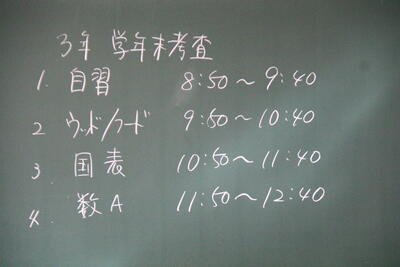 3年 学年末考査
1. 自習 8:50～9:40
2 ウッド/フード 9:50～10:40
3. 国表 10:50～11:40
4. 数A 11:50～12:40